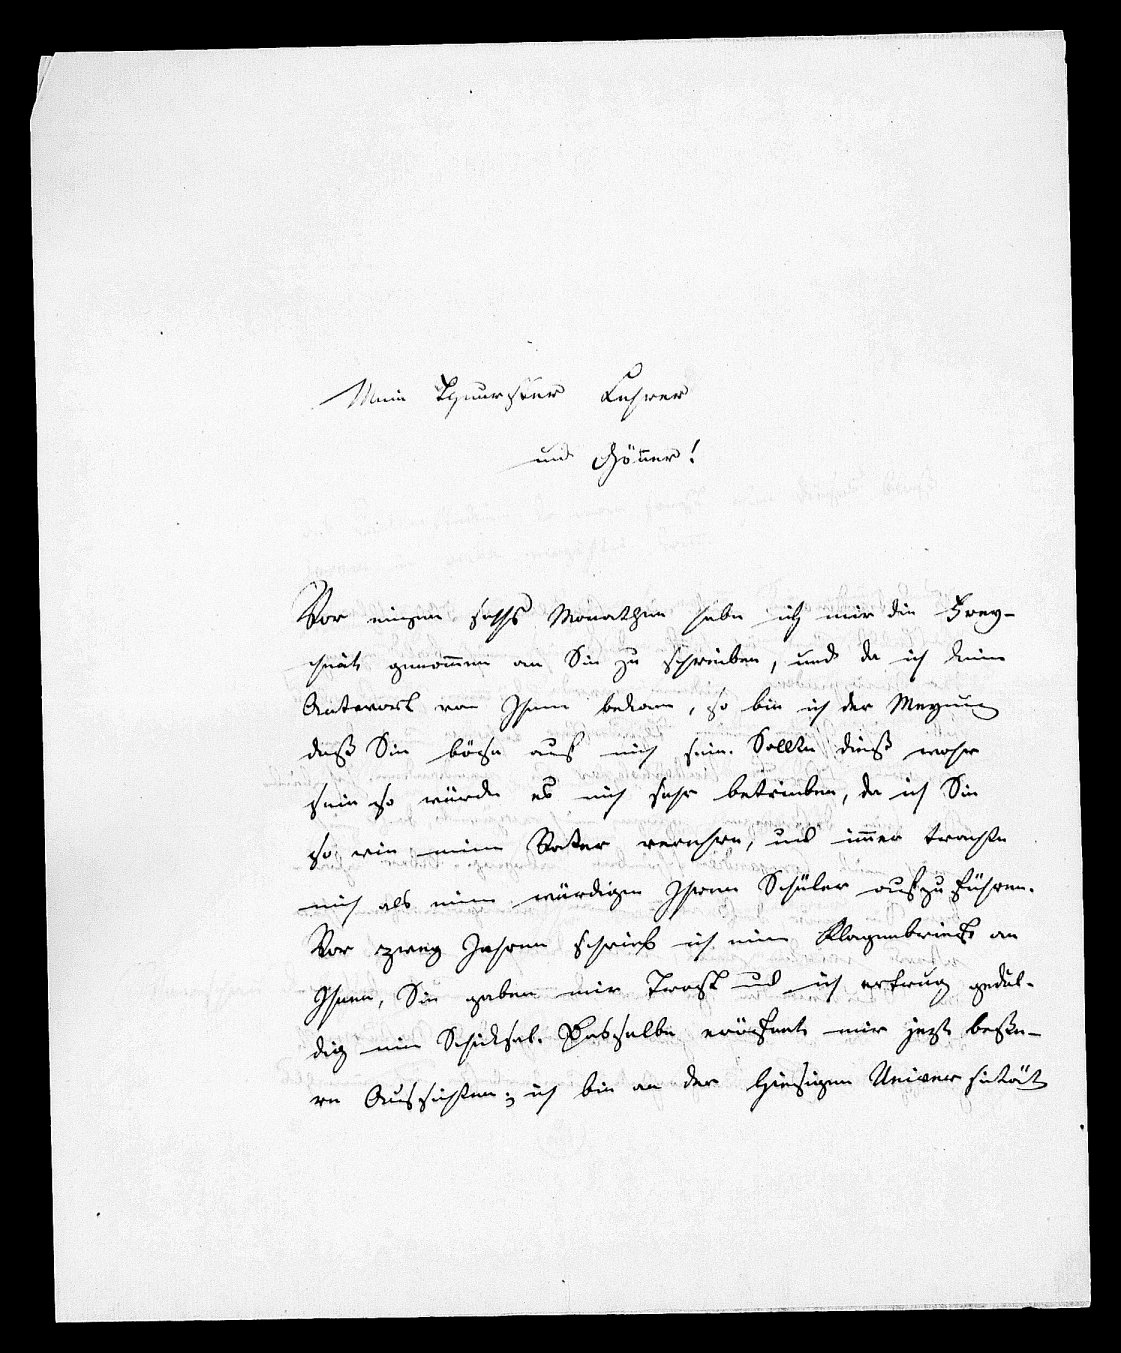 Mein Theurster Lehrer
und Gönner!
Vor einigen sechs Monathen habe ich mir die Frey-
heit genommen an Sie zu schreiben, und da ich keine
Antwort von Ihnen bekam, so bin ich der Meynung
daß Sie böse auf mich sein. Sollte dieß wahr
sein so würde es mich sehr betrieben, da ich Sie
so wie meinen Vater verehre, und immer trachte
mich als einen würdigen Ihren Schüler aufzuführen.
Vor zwey Jahren schrieb ich einen Klagenbrief an
Ihnen, Sie gaben mir Trost und ich ertrug gedul-
dig mein Schiksal. Dasselbe eröfnet mir jezt beße-
re Aussichten; ich bin an der hiesigen Universietät